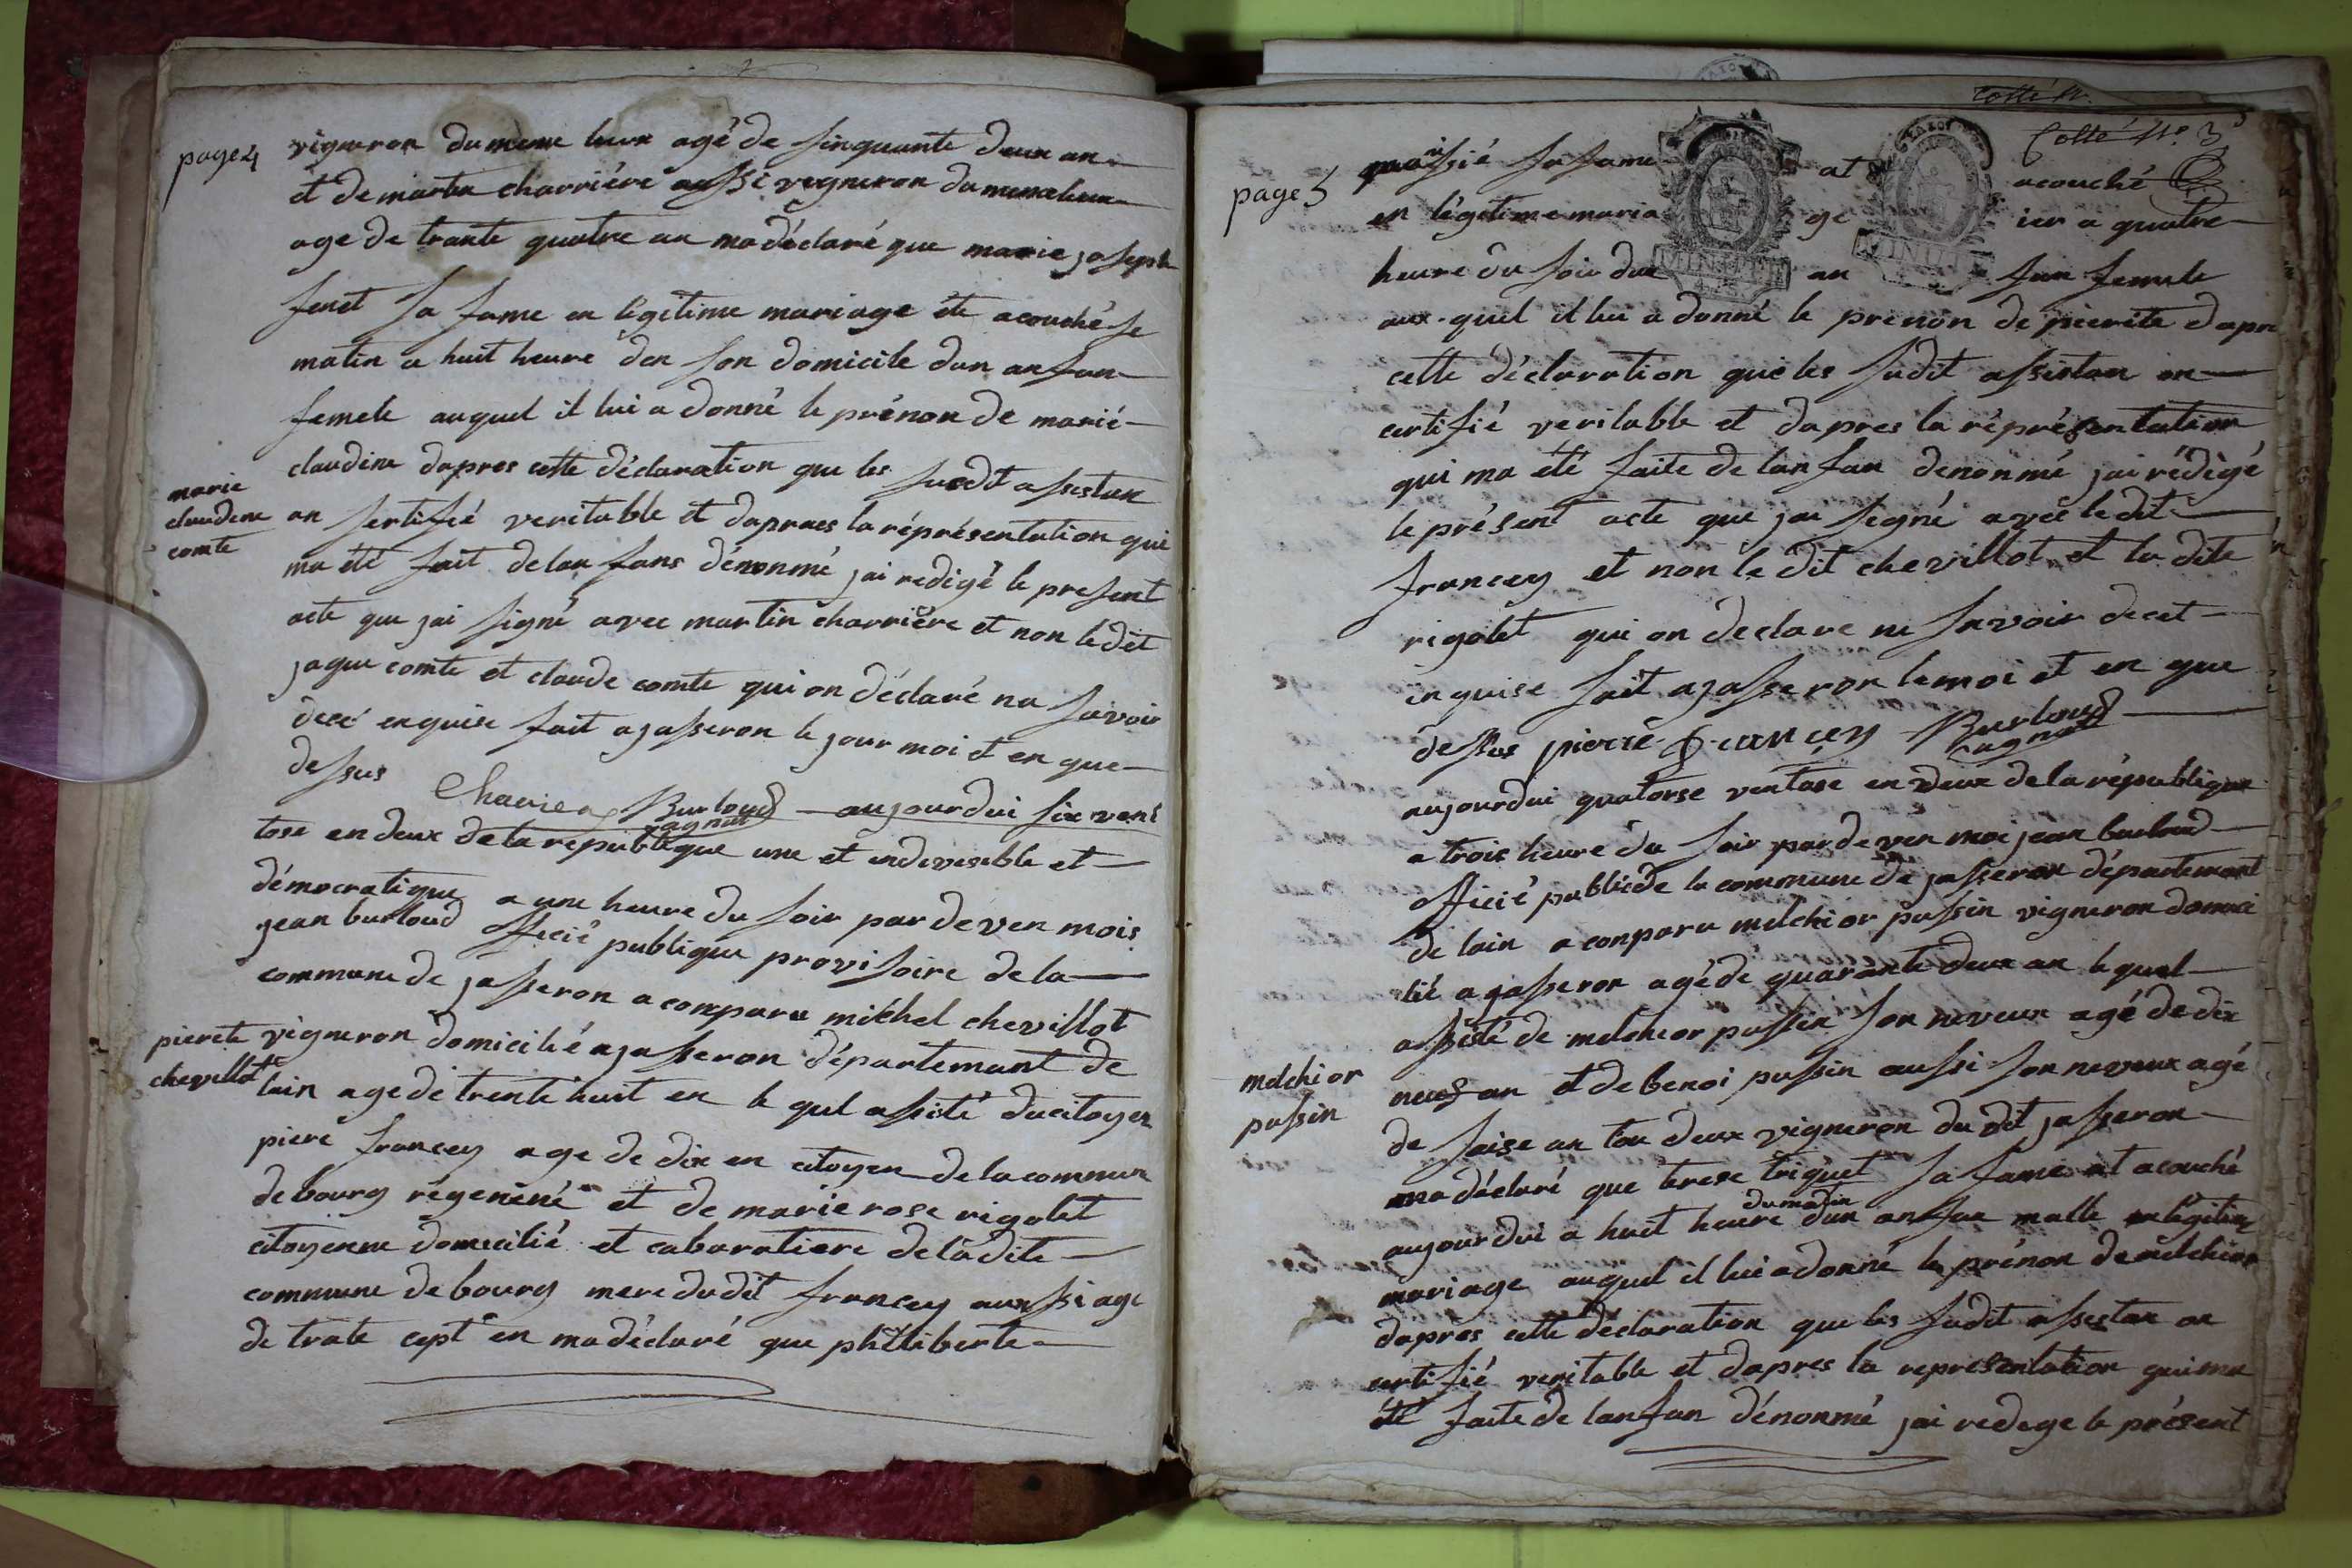 page 4
vigneron du meme lieux agé de sinquante deux an
et de martin charriére aussi vigneron du meme lieux
age de trante quatre an ma déclaré que marie joseph
feret sa fame en légitime mariage éte acouché se
matin a huit heure den son domicile dun anfan
femele auquel il lui a donné le prénon de marié
claudine dapres cette déclaration que les susdit assistan
marie
claudine
comte
on sertifié veritable et dapraes la réprésentation qui
ma été fait delan fans dénonmé jai redigé le present
acte que jai signé avec martin charriére et non ledit
jaque comte et claude comte qui on déclaré na savoir
decé enquise fait a jasseron le jour moi et en que
dessus Charier Burloud agnat aujourdui six vent
tose en deux de la republique une et indevesible et
démocratique a une heure du soir par deven mois
jean burloud officié publique provisoire de la
commune de jasseron a comparu mikhel chevillot
pierete
chevillotte
vigneron domicilié a jasseron départemant de
lain age de trente huit en le quel assité ducitoyen
piere francey age de dix en citoyen de la commune
de bourg régenéné et de marie rose rigolet
citoyenne domicilié et cabaratiere de la dite
commune de bourg mere dudit francey aussi age
de trate cept en ma déclaré que philiberte
Cotté N.
Cotté N.º 3
page 5
sa fame at acouché
en légitime maria ge ier a quatre
heure du soir dun an fan femele
aux quel il lui a donné le prenon de pierete dapre
cette déclaration que les sudit assistan on
certifié veritable et dapres la réprésentation
qui ma été faite de lanfan denonmé jai rédigé
le présent acte que jai segné avec le dit
francey et non le dit chevillot et la dite
rigolet qui on declare ne savoir decet
enquise fait a jasseron le moi et en que
dessus pierre francey Burloud agnat
aujourdui quatorse ventose en deux de la république
a trois heure du soir par de ven moi jean burloud
officié public de la commune de jasseron départemant
de lain a conparu melchior passin vigneron domici
lié a jasseron agé de quarante deux an le quel
assisté de melchior passin son neveux agé de dix
melchior
passin
neuf an et de benoi passin aussi son neveux agé
de saise an tou deux vigneron du dit jasseron
ma déclaré que terese triquet sa fame at acouché
aujourdui a huit heure du matin dun anfan malle en légitim
mariage auquel il lui a donné le prénon de melchior
dapres cette declaration que les sudit assistan on
certifié veritable et dapres la representation qui ma
été faite de lanfan dénonmé jai redege le présent